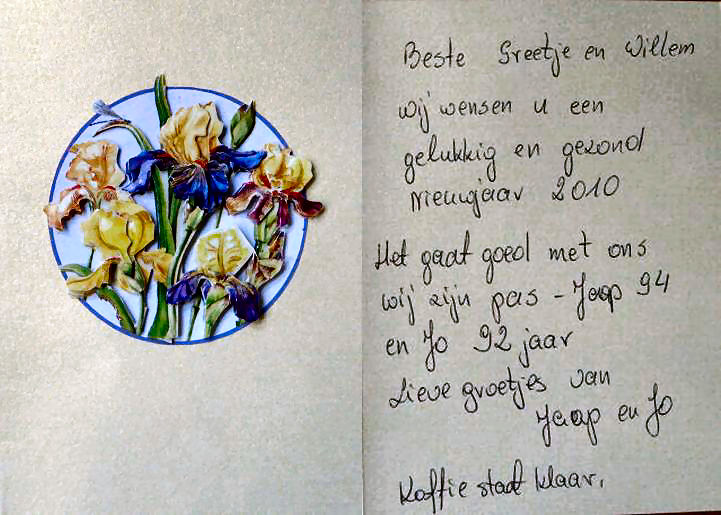 Beste Greetje en Willem
wij wensen u een
gelukkig en gezond
Nieuwjaar 2010
Het gaat goed met ons
wij zijn pas - Jaap 94
en Jo 92 jaar
Lieve groetjes van
Jaap en Jo
Koffie staat klaar.